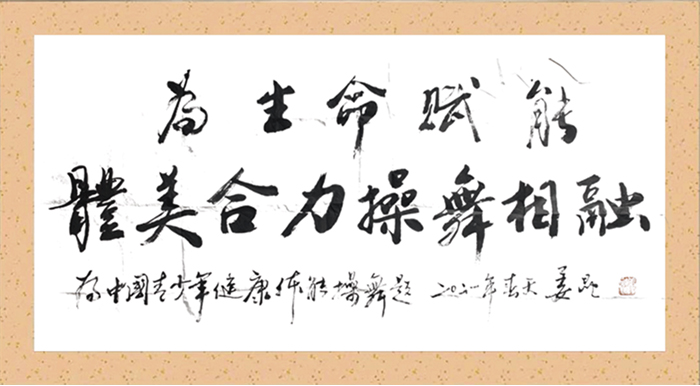 為生命賦能
體美合力操舞相融
為中國青少年健康体能操舞題 二〇二一年春天 姜題